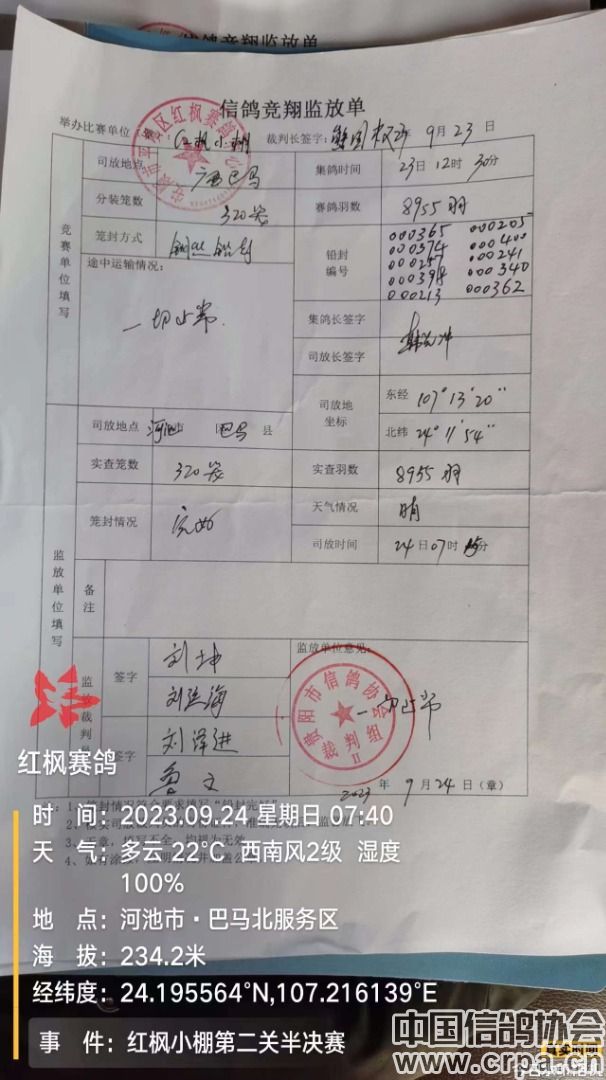 信鸽竞翔监放单
举办比赛单位 红枫小棚 裁判长签字: 9月23日
司放地点 广西巴马 集鸽时间 23日12时30分
分装笼数 320笼 赛鸽羽数 8955羽
竞赛单位填写
笼封方式 铅封编号
000365 000205
000374 000400
000257 000241
000398 000340
000213 000362
途中运输情况:
一切正常.
集鸽长签字
司放长签字
司放地坐标 东经 107°13'20"
北纬 24°11'54"
司放地点 河池 巴马县
实查笼数 320笼 实查羽数 8955羽
笼封情况 完好 天气情况 晴
司放时间 24日07时 分
监放单位填写
备注
签字 刘坤 监放单位意见:
刘延海 一切正常
签字 刘泽进
鲁文
贵阳市信鸽协会
裁判组
II
2023年9月24日(章)
红枫赛鸽
时 间: 2023.09.24 星期日 07:40
天 气: 多云 22°C 西南风2级 湿度
100%
地 点: 河池市·巴马北服务区
海 拔: 234.2米
经纬度: 24.195564°N,107.216139°E
事 件: 红枫小棚第二关半决赛
中国信鸽协会
www.crpa.cn